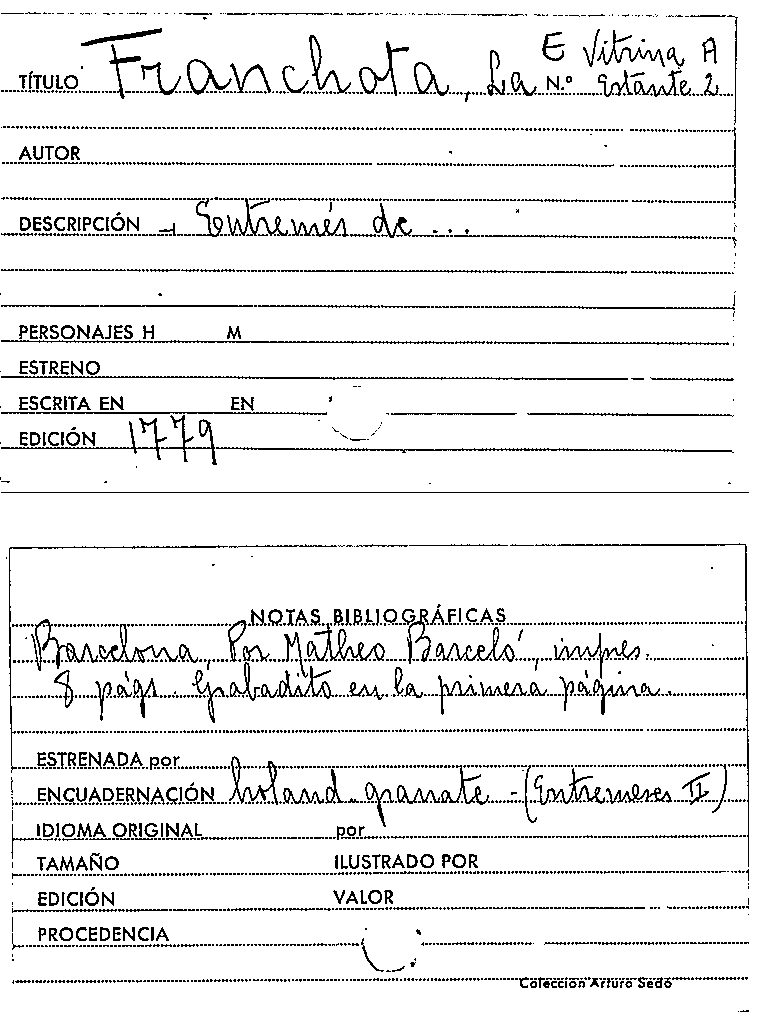 E Vitrina A
TÍTULO Franchota, La N.º Estante 2
AUTOR
DESCRIPCIÓN - Entremés de ...
PERSONAJES H M
ESTRENO
ESCRITA EN EN
EDICIÓN 1779
NOTAS BIBLIOGRÁFICAS
Barcelona, Por Matheo Barceló, impres.
8 págs. Grabadito en la primera página.
ESTRENADA por
ENCUADERNACIÓN holand. granate - (Entremeses II)
IDIOMA ORIGINAL por
TAMAÑO ILUSTRADO POR
EDICIÓN VALOR
PROCEDENCIA
Colección Arturo Sedó